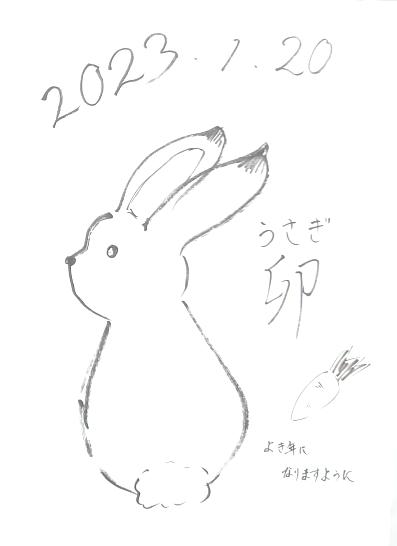 2023.1.20
うさぎ
卯
よき年に
なりますように